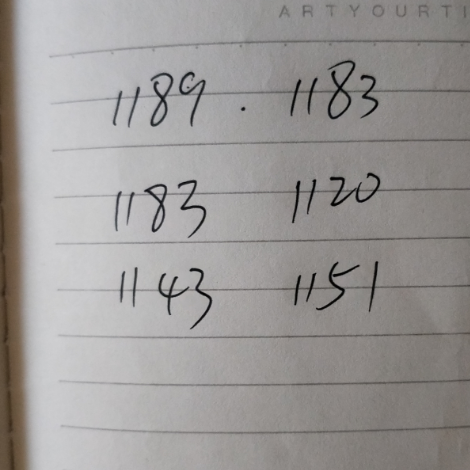 ARTYOURTI
1189 . 1183
1183 1120
1143 1151